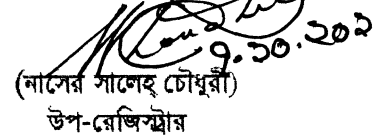 ৭.১০.২০২
(নাসের সালেহ্ চৌধুরী)
উপ-রেজিস্ট্রার